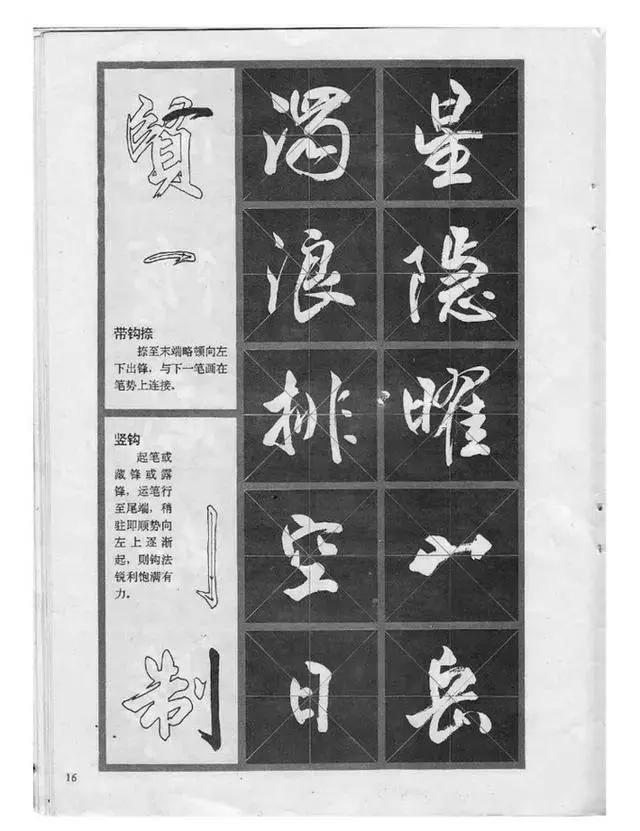 賢
带钩捺
捺至末端略顿向左
下出锋，与下一笔画在
笔势上连接。
竖钩
起笔或
藏锋或露
锋，运笔行
至尾端，稍
驻即顺势向
左上逐渐
起，则钩法
锐利饱满有
力。
制
濁浪排空日
星隐曜山岳
16